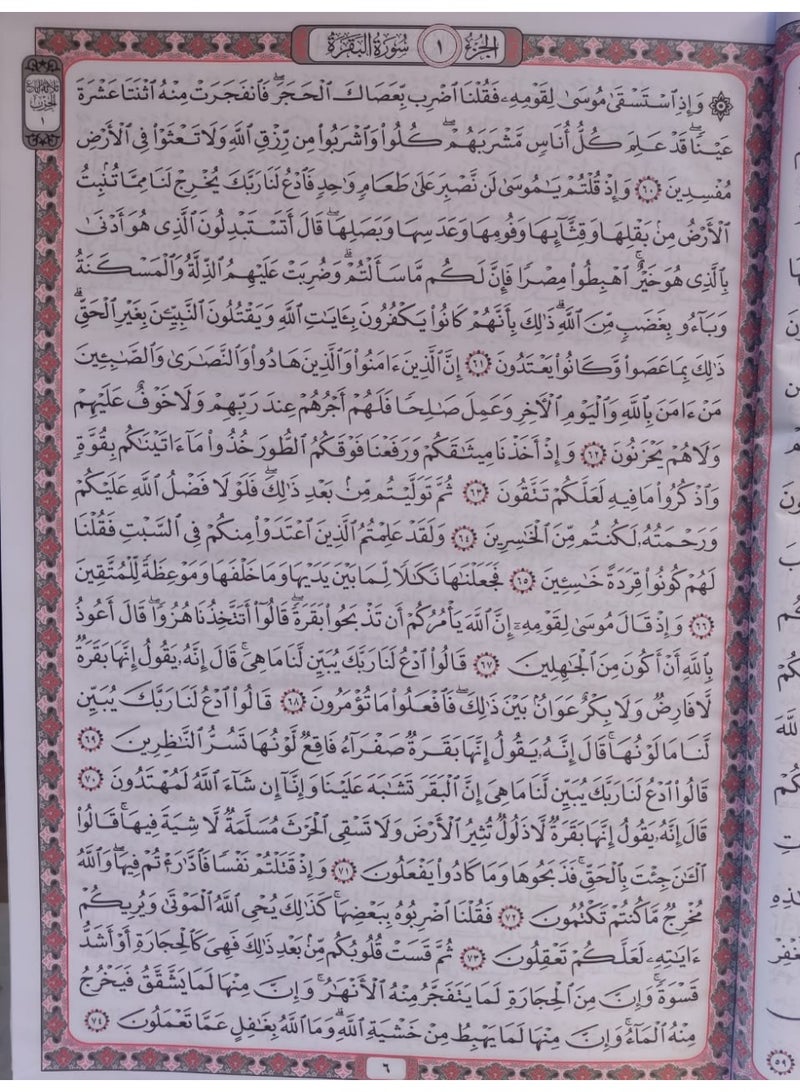 الجزء ١ سورة البقرة
ثلاثة أرباع
الحزب
١
۞ وَإِذِ ٱسْتَسْقَىٰ مُوسَىٰ لِقَوْمِهِۦ فَقُلْنَا ٱضْرِب بِّعَصَاكَ ٱلْحَجَرَۖ فَٱنفَجَرَتْ مِنْهُ ٱثْنَتَا عَشْرَةَ
عَيْنًاۖ قَدْ عَلِمَ كُلُّ أُنَاسٍ مَّشْرَبَهُمْۖ كُلُوا۟ وَٱشْرَبُوا۟ مِن رِّزْقِ ٱللَّهِ وَلَا تَعْثَوْا۟ فِى ٱلْأَرْضِ
مُفْسِدِينَ ٦٠ وَإِذْ قُلْتُمْ يَـٰمُوسَىٰ لَن نَّصْبِرَ عَلَىٰ طَعَامٍ وَٰحِدٍ فَٱدْعُ لَنَا رَبَّكَ يُخْرِجْ لَنَا مِمَّا تُنۢبِتُ
ٱلْأَرْضُ مِنۢ بَقْلِهَا وَقِثَّآئِهَا وَفُومِهَا وَعَدَسِهَا وَبَصَلِهَاۖ قَالَ أَتَسْتَبْدِلُونَ ٱلَّذِى هُوَ أَدْنَىٰ
بِٱلَّذِى هُوَ خَيْرٌۚ ٱهْبِطُوا۟ مِصْرًا فَإِنَّ لَكُم مَّا سَأَلْتُمْۗ وَضُرِبَتْ عَلَيْهِمُ ٱلذِّلَّةُ وَٱلْمَسْكَنَةُ
وَبَآءُو بِغَضَبٍ مِّنَ ٱللَّهِۗ ذَٰلِكَ بِأَنَّهُمْ كَانُوا۟ يَكْفُرُونَ بِـَٔايَـٰتِ ٱللَّهِ وَيَقْتُلُونَ ٱلنَّبِيِّـۧنَ بِغَيْرِ ٱلْحَقِّۗ
ذَٰلِكَ بِمَا عَصَوا۟ وَّكَانُوا۟ يَعْتَدُونَ ٦١ إِنَّ ٱلَّذِينَ ءَامَنُوا۟ وَٱلَّذِينَ هَادُوا۟ وَٱلنَّصَـٰرَىٰ وَٱلصَّـٰبِـِٔينَ
مَنْ ءَامَنَ بِٱللَّهِ وَٱلْيَوْمِ ٱلْـَٔاخِرِ وَعَمِلَ صَـٰلِحًا فَلَهُمْ أَجْرُهُمْ عِندَ رَبِّهِمْ وَلَا خَوْفٌ عَلَيْهِمْ
وَلَا هُمْ يَحْزَنُونَ ٦٢ وَإِذْ أَخَذْنَا مِيثَـٰقَكُمْ وَرَفَعْنَا فَوْقَكُمُ ٱلطُّورَ خُذُوا۟ مَآ ءَاتَيْنَـٰكُم بِقُوَّةٍ
وَٱذْكُرُوا۟ مَا فِيهِ لَعَلَّكُمْ تَتَّقُونَ ٦٣ ثُمَّ تَوَلَّيْتُم مِّنۢ بَعْدِ ذَٰلِكَۖ فَلَوْلَا فَضْلُ ٱللَّهِ عَلَيْكُمْ
وَرَحْمَتُهُۥ لَكُنتُم مِّنَ ٱلْخَـٰسِرِينَ ٦٤ وَلَقَدْ عَلِمْتُمُ ٱلَّذِينَ ٱعْتَدَوْا۟ مِنكُمْ فِى ٱلسَّبْتِ فَقُلْنَا
لَهُمْ كُونُوا۟ قِرَدَةً خَـٰسِـِٔينَ ٦٥ فَجَعَلْنَـٰهَا نَكَـٰلًا لِّمَا بَيْنَ يَدَيْهَا وَمَا خَلْفَهَا وَمَوْعِظَةً لِّلْمُتَّقِينَ
٦٦ وَإِذْ قَالَ مُوسَىٰ لِقَوْمِهِۦٓ إِنَّ ٱللَّهَ يَأْمُرُكُمْ أَن تَذْبَحُوا۟ بَقَرَةًۖ قَالُوٓا۟ أَتَتَّخِذُنَا هُزُوًاۖ قَالَ أَعُوذُ
بِٱللَّهِ أَنْ أَكُونَ مِنَ ٱلْجَـٰهِلِينَ ٦٧ قَالُوا۟ ٱدْعُ لَنَا رَبَّكَ يُبَيِّن لَّنَا مَا هِىَۚ قَالَ إِنَّهُۥ يَقُولُ إِنَّهَا بَقَرَةٌ
لَّا فَارِضٌ وَلَا بِكْرٌ عَوَانٌۢ بَيْنَ ذَٰلِكَۖ فَٱفْعَلُوا۟ مَا تُؤْمَرُونَ ٦٨ قَالُوا۟ ٱدْعُ لَنَا رَبَّكَ يُبَيِّن
لَّنَا مَا لَوْنُهَاۚ قَالَ إِنَّهُۥ يَقُولُ إِنَّهَا بَقَرَةٌ صَفْرَآءُ فَاقِعٌ لَّوْنُهَا تَسُرُّ ٱلنَّـٰظِرِينَ ٦٩
قَالُوا۟ ٱدْعُ لَنَا رَبَّكَ يُبَيِّن لَّنَا مَا هِىَ إِنَّ ٱلْبَقَرَ تَشَـٰبَهَ عَلَيْنَا وَإِنَّآ إِن شَآءَ ٱللَّهُ لَمُهْتَدُونَ ٧٠
قَالَ إِنَّهُۥ يَقُولُ إِنَّهَا بَقَرَةٌ لَّا ذَلُولٌ تُثِيرُ ٱلْأَرْضَ وَلَا تَسْقِى ٱلْحَرْثَ مُسَلَّمَةٌ لَّا شِيَةَ فِيهَاۚ قَالُوا۟
ٱلْـَٔـٰنَ جِئْتَ بِٱلْحَقِّۚ فَذَبَحُوهَا وَمَا كَادُوا۟ يَفْعَلُونَ ٧١ وَإِذْ قَتَلْتُمْ نَفْسًا فَٱدَّٰرَْٰٔتُمْ فِيهَاۖ وَٱللَّهُ
مُخْرِجٌ مَّا كُنتُمْ تَكْتُمُونَ ٧٢ فَقُلْنَا ٱضْرِبُوهُ بِبَعْضِهَاۚ كَذَٰلِكَ يُحْىِ ٱللَّهُ ٱلْمَوْتَىٰ وَيُرِيكُمْ
ءَايَـٰتِهِۦ لَعَلَّكُمْ تَعْقِلُونَ ٧٣ ثُمَّ قَسَتْ قُلُوبُكُم مِّنۢ بَعْدِ ذَٰلِكَ فَهِىَ كَٱلْحِجَارَةِ أَوْ أَشَدُّ
قَسْوَةًۚ وَإِنَّ مِنَ ٱلْحِجَارَةِ لَمَا يَتَفَجَّرُ مِنْهُ ٱلْأَنْهَـٰرُۚ وَإِنَّ مِنْهَا لَمَا يَشَّقَّقُ فَيَخْرُجُ
مِنْهُ ٱلْمَآءُۚ وَإِنَّ مِنْهَا لَمَا يَهْبِطُ مِنْ خَشْيَةِ ٱللَّهِۗ وَمَا ٱللَّهُ بِغَـٰفِلٍ عَمَّا تَعْمَلُونَ ٧٤
٦
٥٩